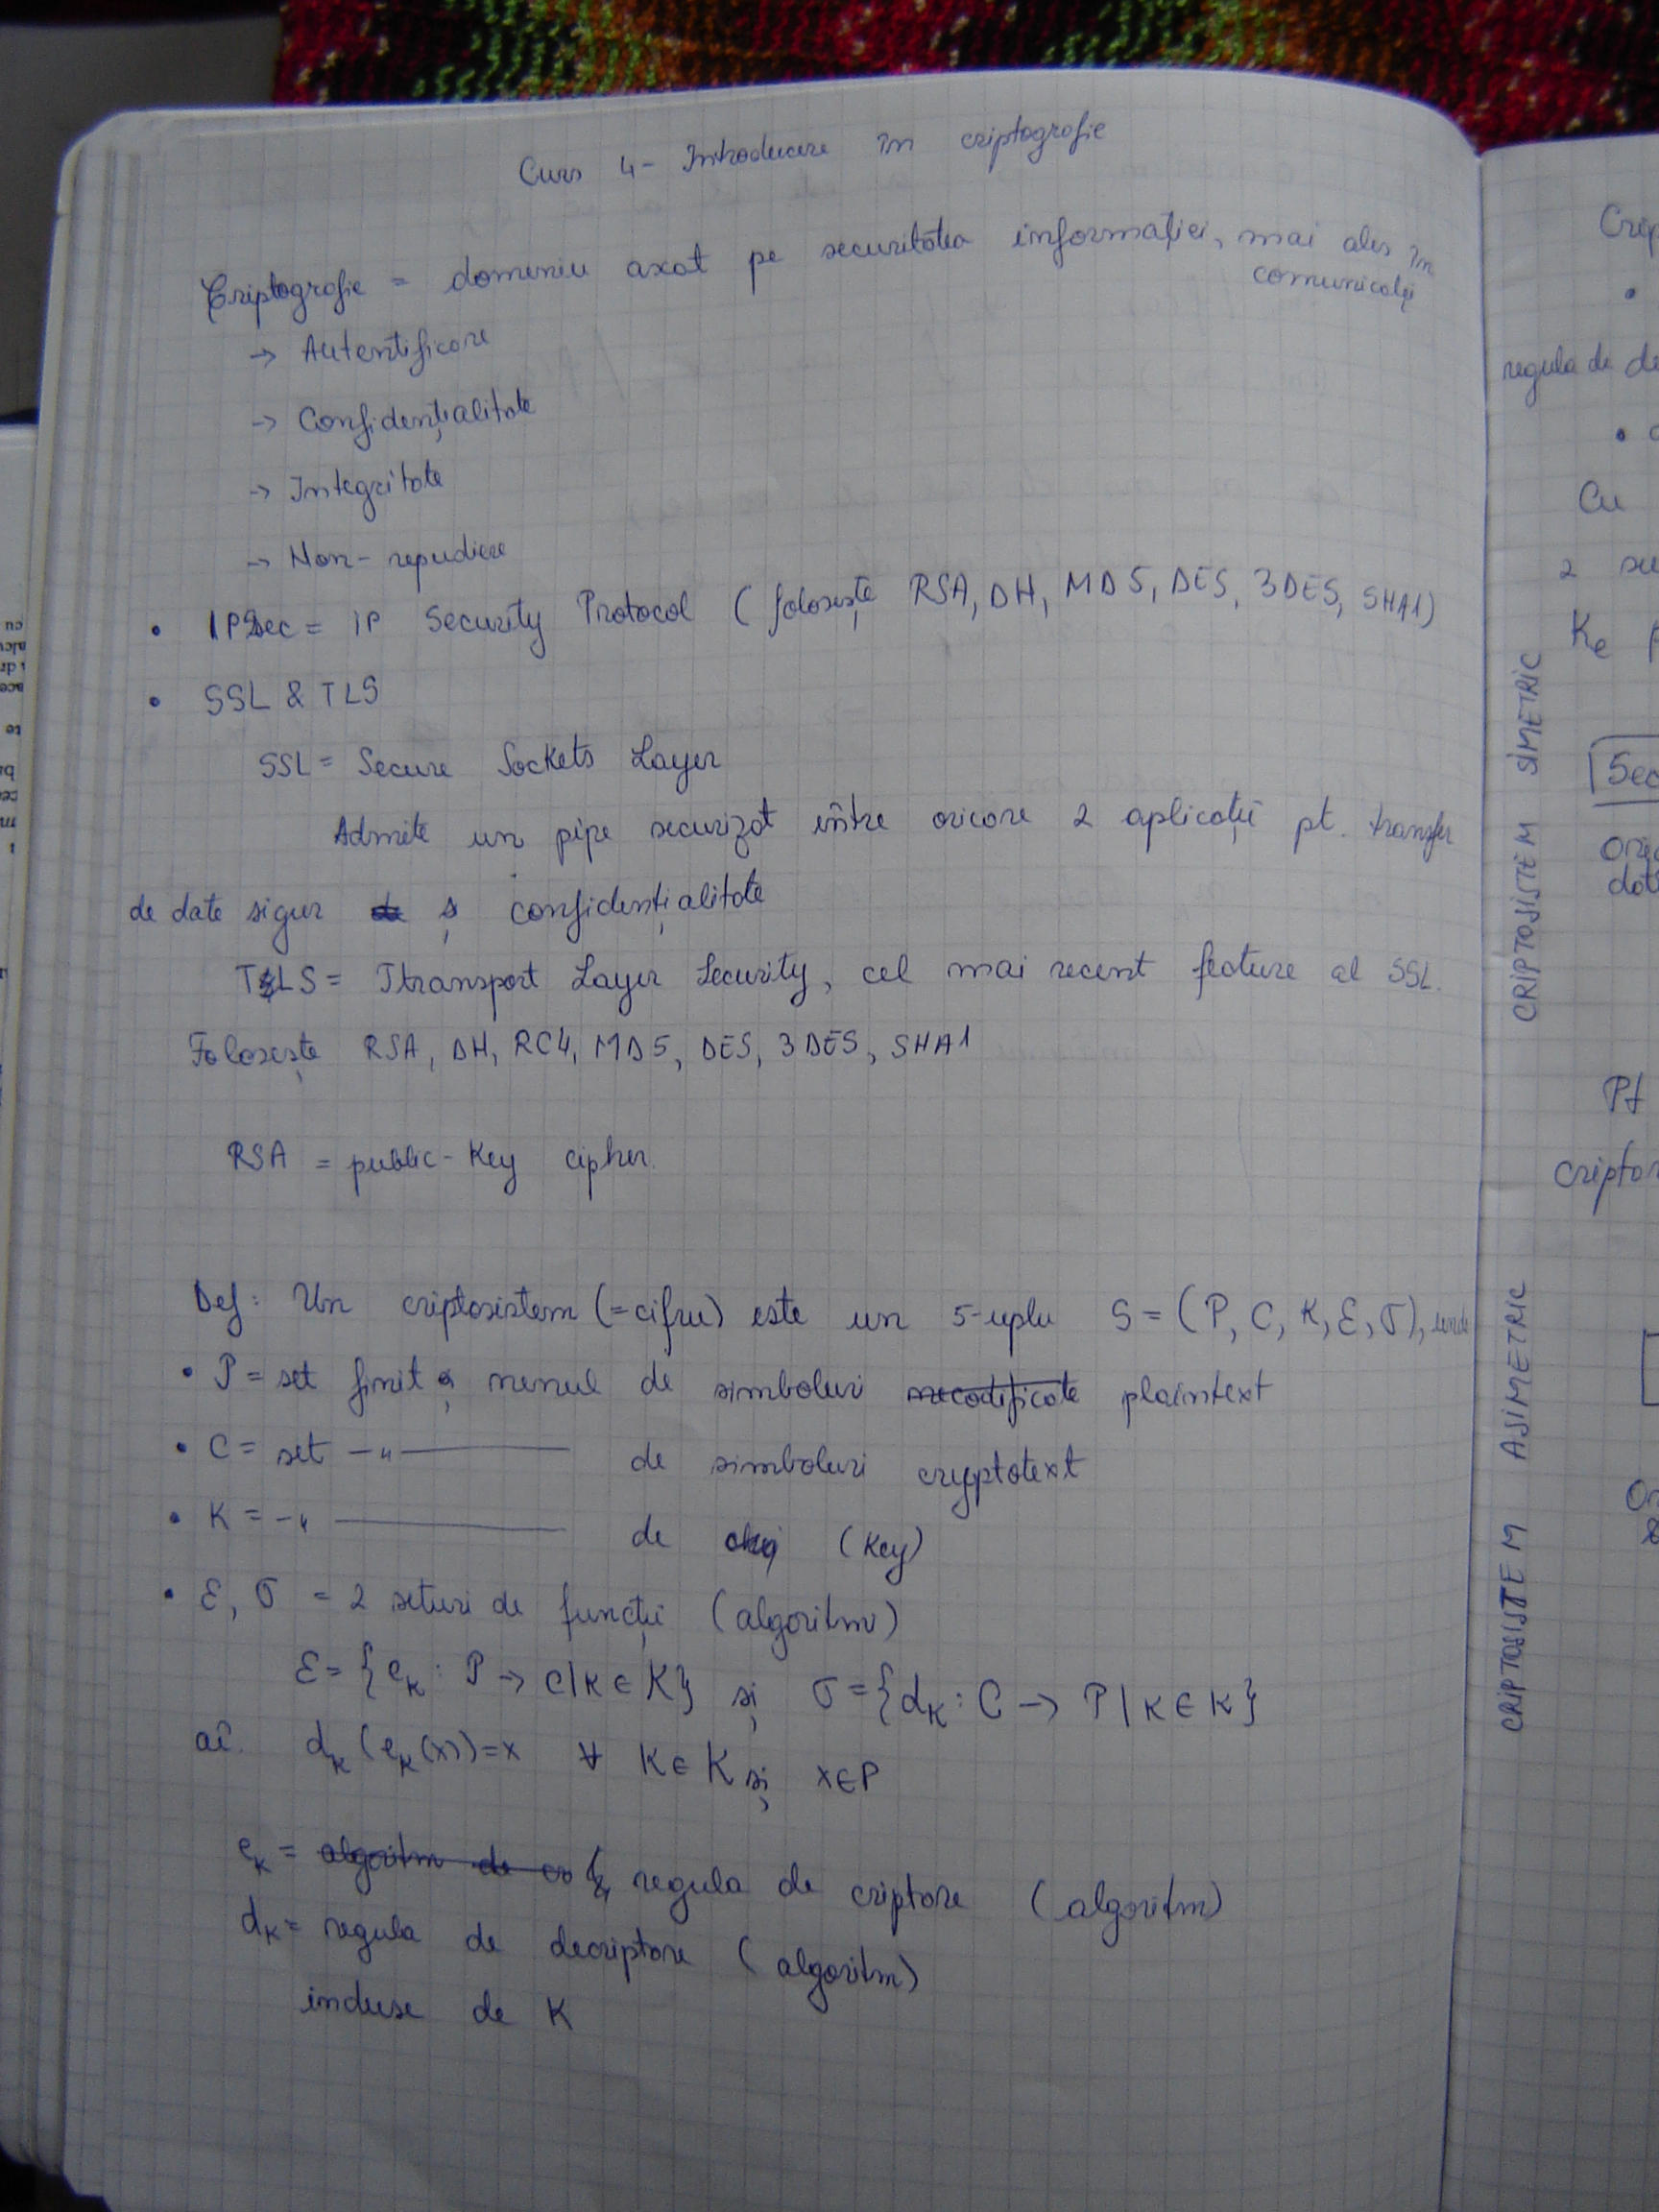 Curs 4 - Introducere în criptografie
Criptografie = domeniu axat pe securitatea informației, mai ales în
comunicații
→ Autentificare
→ Confidențialitate
→ Integritate
→ Non-repudiere
• IPSec = IP Security Protocol (folosește RSA, DH, MD5, DES, 3DES, SHA1)
• SSL & TLS
SSL = Secure Sockets Layer
Admite un pipe securizat între oricare 2 aplicații pt. transfer
de date sigur și confidențialitate
TLS = Transport Layer Security, cel mai recent feature al SSL.
Folosește RSA, DH, RC4, MD5, DES, 3DES, SHA1
RSA = public-key cipher.
Def: Un criptosistem (=cifru) este un 5-uplu S = (P, C, K, Ɛ, σ), unde
• P = set finit și nenul de simboluri necodificate plaintext
• C = set —"— de simboluri cryptotext
• K = —"— de chei (key)
• Ɛ, σ = 2 seturi de funcții (algoritmi)
Ɛ = {e_k : P → C | k ∈ K} și σ = {d_k : C → P | k ∈ K}
aî. d_k (e_k (x)) = x ∀ k ∈ K și x ∈ P
e_k = algoritm de regula de criptare (algoritm)
d_k = regula de decriptare (algoritm)
induse de K
regula de de
Cu
2
Ke
CRIPTOSISTEM SIMETRIC
Sec
Pt
CRIPTOSISTEM ASIMETRIC